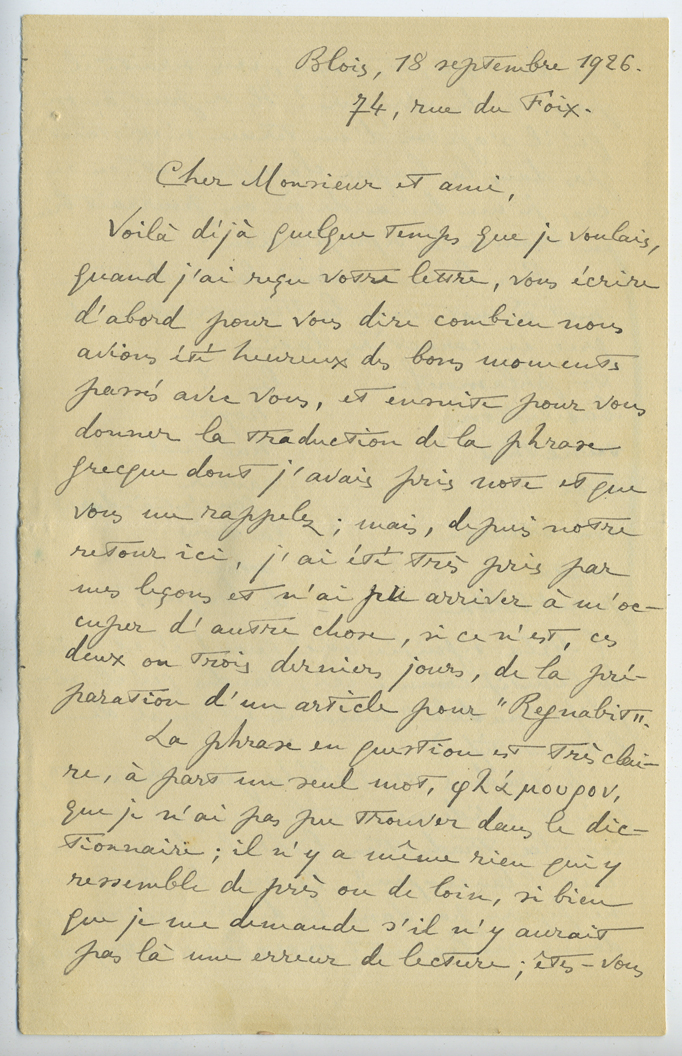 Blois, 18 septembre 1926.
74, rue du Foix.
Cher Monsieur et ami,
Voilà déjà quelque temps que je voulais,
quand j'ai reçu votre lettre, vous écrire
d'abord pour vous dire combien nous
avions été heureux des bons moments
passés avec vous, et ensuite pour vous
donner la traduction de la phrase
grecque dont j'avais pris note et que
vous me rappelez ; mais, depuis notre
retour ici, j'ai été très pris par
mes leçons et n'ai pu arriver à m'oc-
cuper d'autre chose, si ce n'est, ces
deux ou trois derniers jours, de la pré-
paration d'un article pour "Regnabit".
La phrase en question est très clai-
re, à part un seul mot, φλάμουρον,
que je n'ai pas pu trouver dans le dic-
tionnaire ; il n'y a même rien qui y
ressemble de près ou de loin, si bien
que je me demande s'il n'y aurait
pas là une erreur de lecture ; êtes-vous